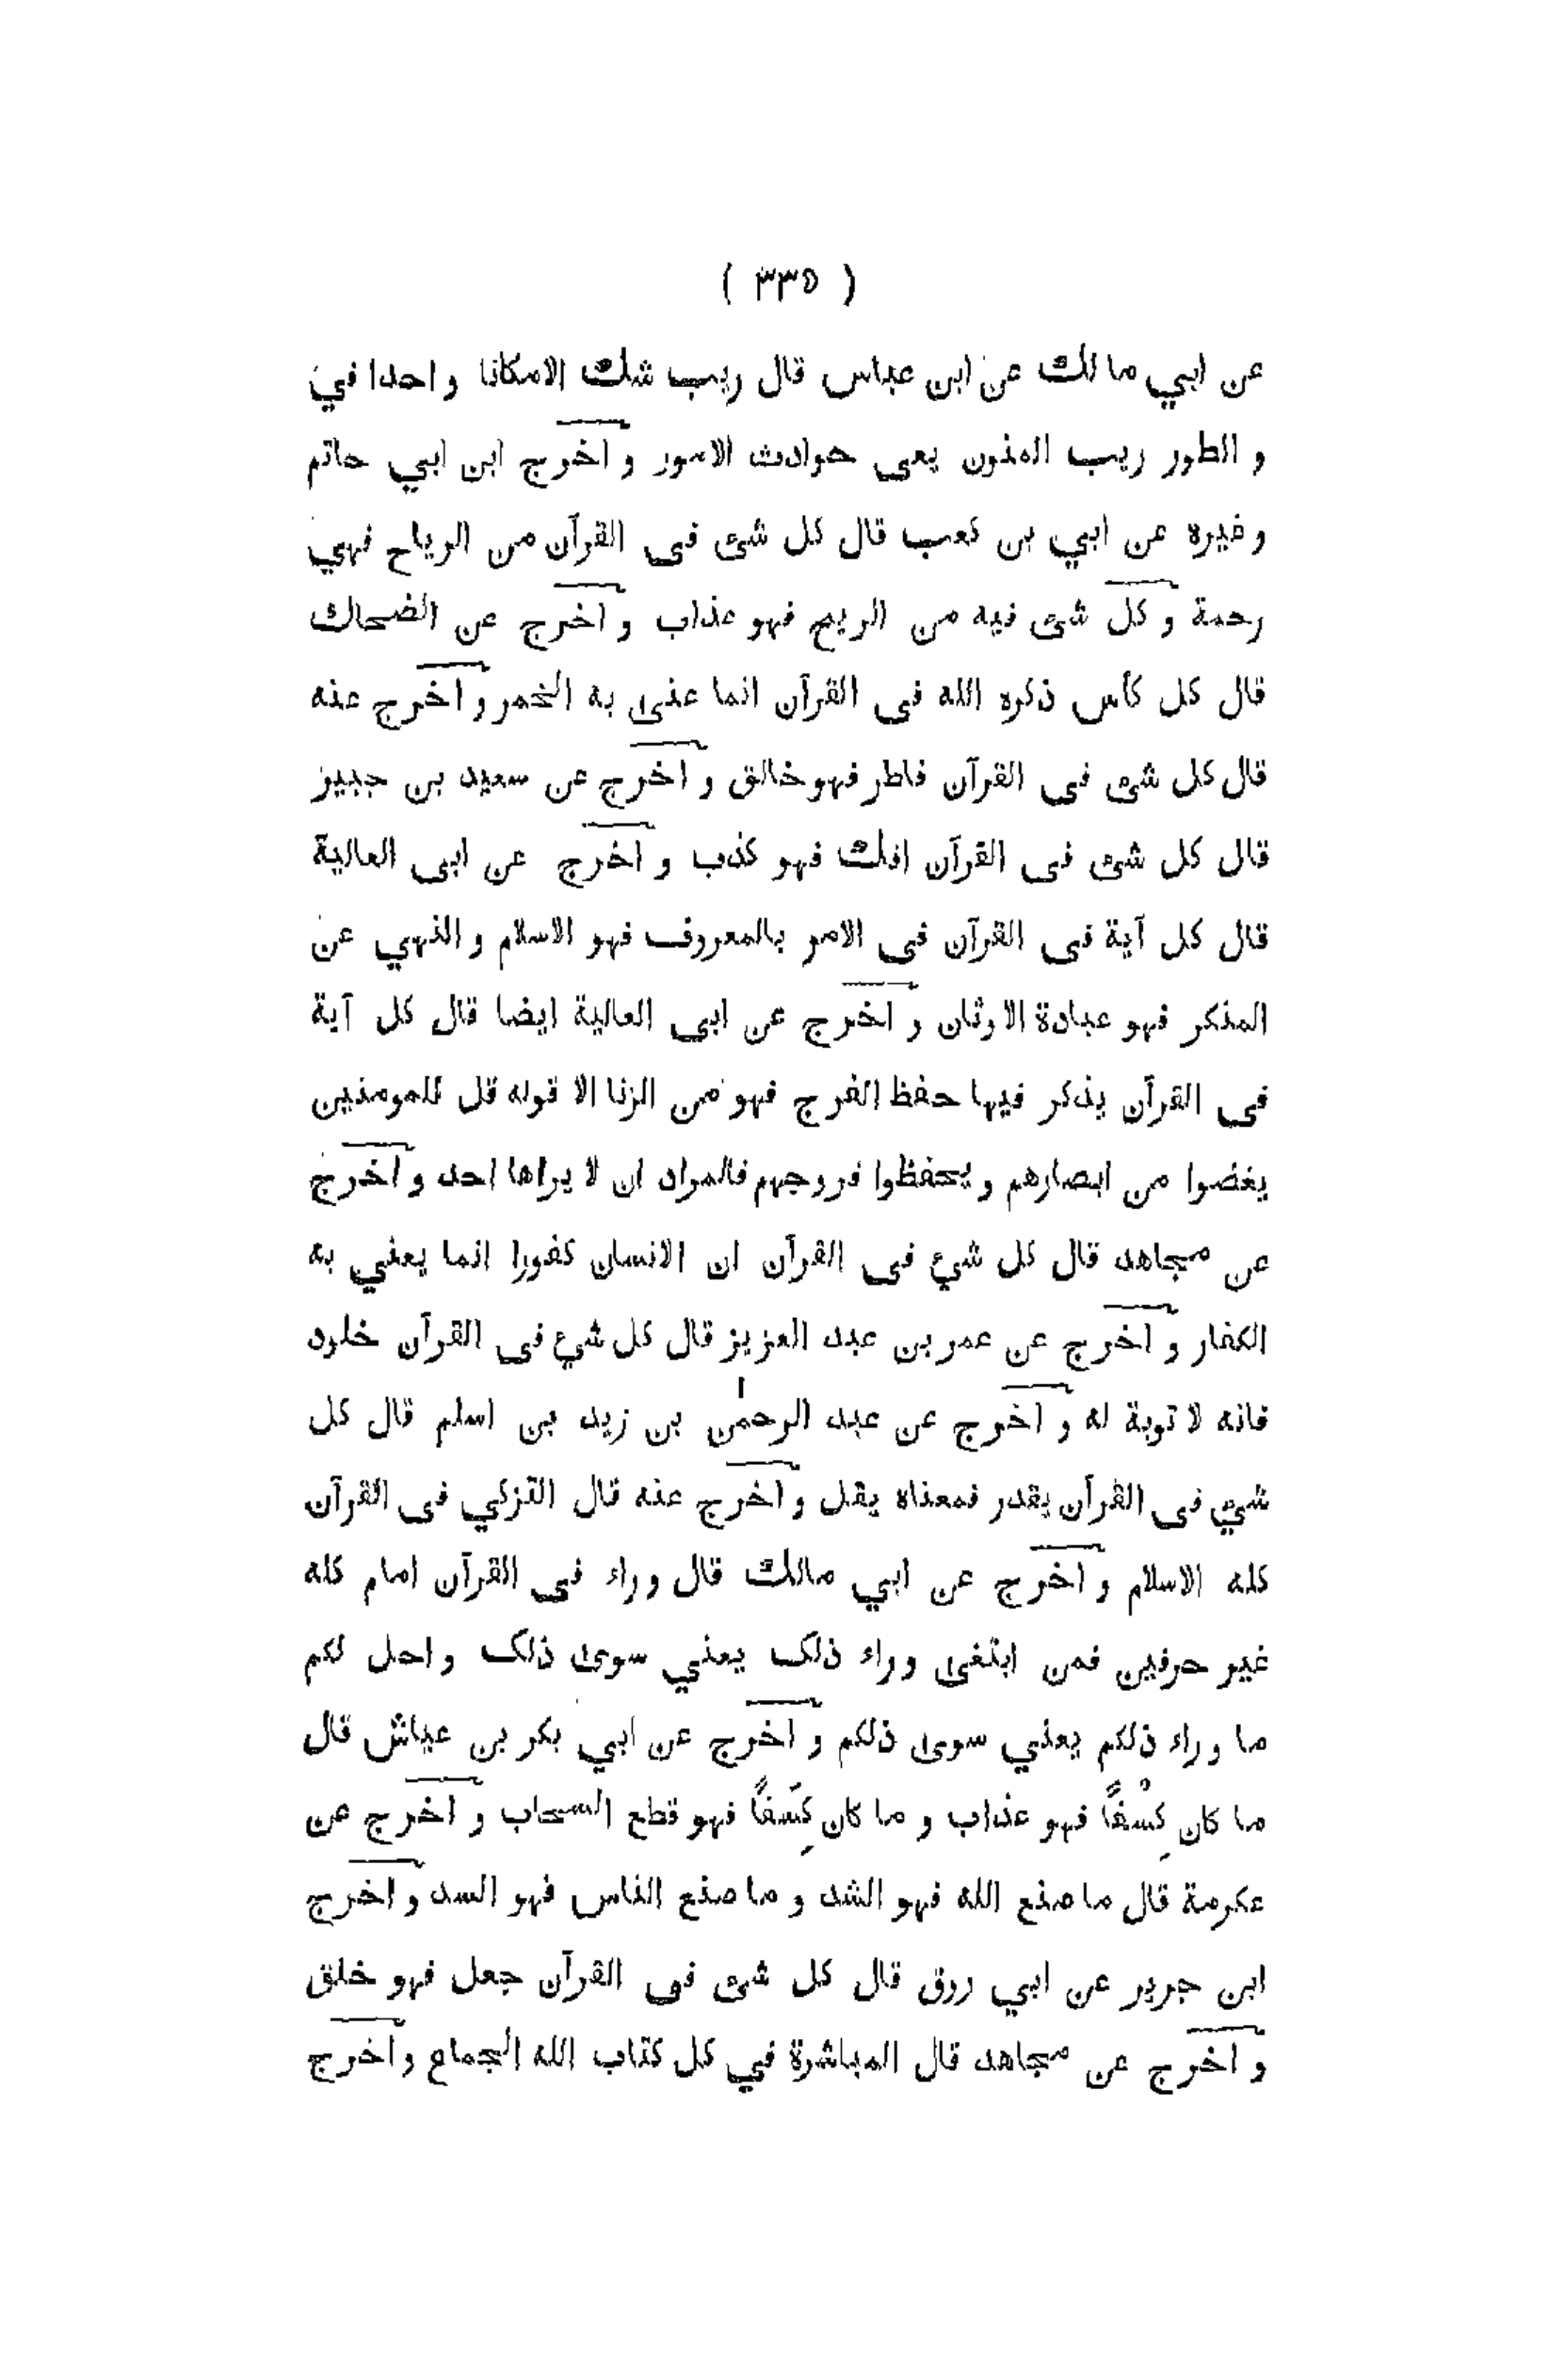 ( ٣٣٥ )
عن ابي مالك عن ابن عباس قال ريب شك الامكانا واحدا في
و الطور ريب المنون يعى حوادث الامور و اخرج ابن ابي حاتم
وغيره عن ابي بن كعب قال كل شئ فى القرآن من الرياح فهي
رحمة و كل شئ فيه من الريح فهو عذاب و اخرج عن الضحاك
قال كل كأس ذكره الله فى القرآن انما عنى به الخمر و اخرج عنه
قال كل شئ فى القرآن فاطر فهو خالق و اخرج عن سعيد بن جبير
قال كل شئ فى القرآن افك فهو كذب و اخرج عن ابى العالية
قال كل آية فى القرآن فى الامر بالمعروف فهو الاسلام و النهي عن
المنكر فهو عبادة الاوثان و اخرج عن ابى العالية ايضا قال كل آية
فى القرآن يذكر فيها حفظ الفرج فهو من الزنا الا قوله قل للمومنين
يغضوا من ابصارهم و يحفظوا فروجهم فالمراد ان لا يراها احد و اخرج
عن مجاهد قال كل شيء فى القرآن ان الانسان كفورا انما يعني به
الكفار و اخرج عن عمر بن عبد العزيز قال كل شيء فى القرآن خلود
فانه لا توبة له و اخرج عن عبد الرحمٰن بن زيد بن اسلم قال كل
شيء فى القرآن يقدر فمعناه يقل و اخرج عنه قال التزكي فى القرآن
كله الاسلام و اخرج عن ابي مالك قال وراء فى القرآن امام كله
غير حرفين فمن ابتغى وراء ذلك يعني سوى ذلك واحل لكم
ما وراء ذلكم يعني سوى ذلكم و اخرج عن ابي بكر بن عياش قال
ما كان كِسْفًا فهو عذاب و ما كان كِسَفًا فهو قطع السحاب و اخرج عن
عكرمة قال ما صنع الله فهو الشد و ما صنع الناس فهو السد و اخرج
ابن جرير عن ابي روق قال كل شئ فى القرآن جعل فهو خلق
و اخرج عن مجاهد قال المباشرة في كل كتاب الله الجماع و اخرج